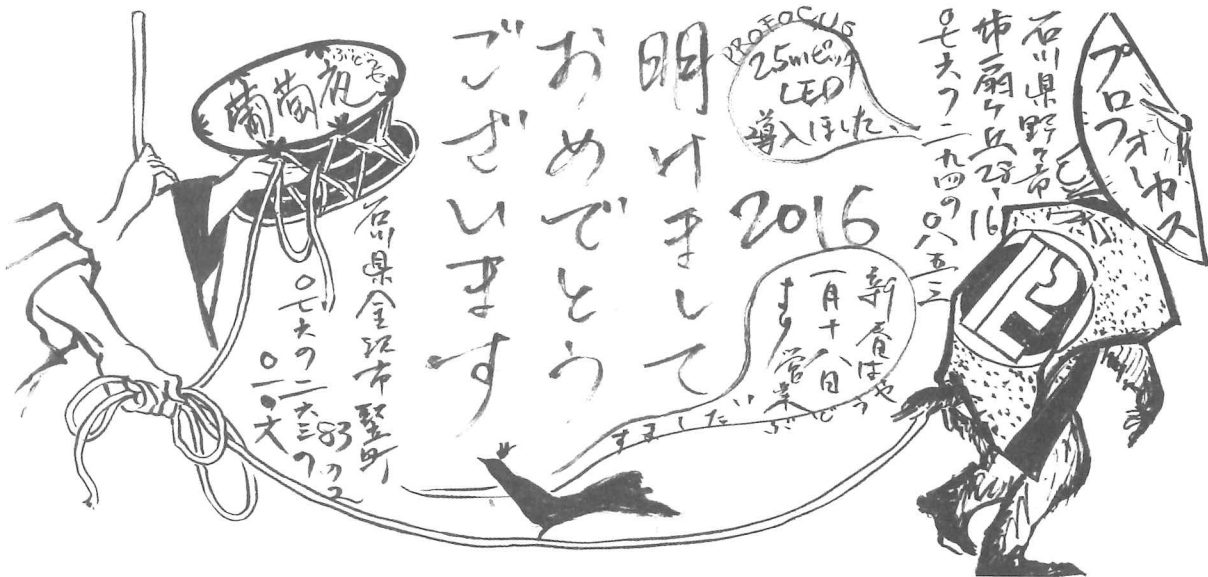 プロフォーカス
石川県野々市
姉扇ケ丘28-16
〇七六ノ二九四ノ〇八五三
PROFOCUS
2.5mピッチ
LED
導入しました、
2016
明けまして
おめでとう
ございます
新春は
一月十八日
より営業
すましたい
ぶどうや
葡萄祝
石川県金沢市竪町
83ノ2
〇七六ノ二六三ノ
〇一〇六